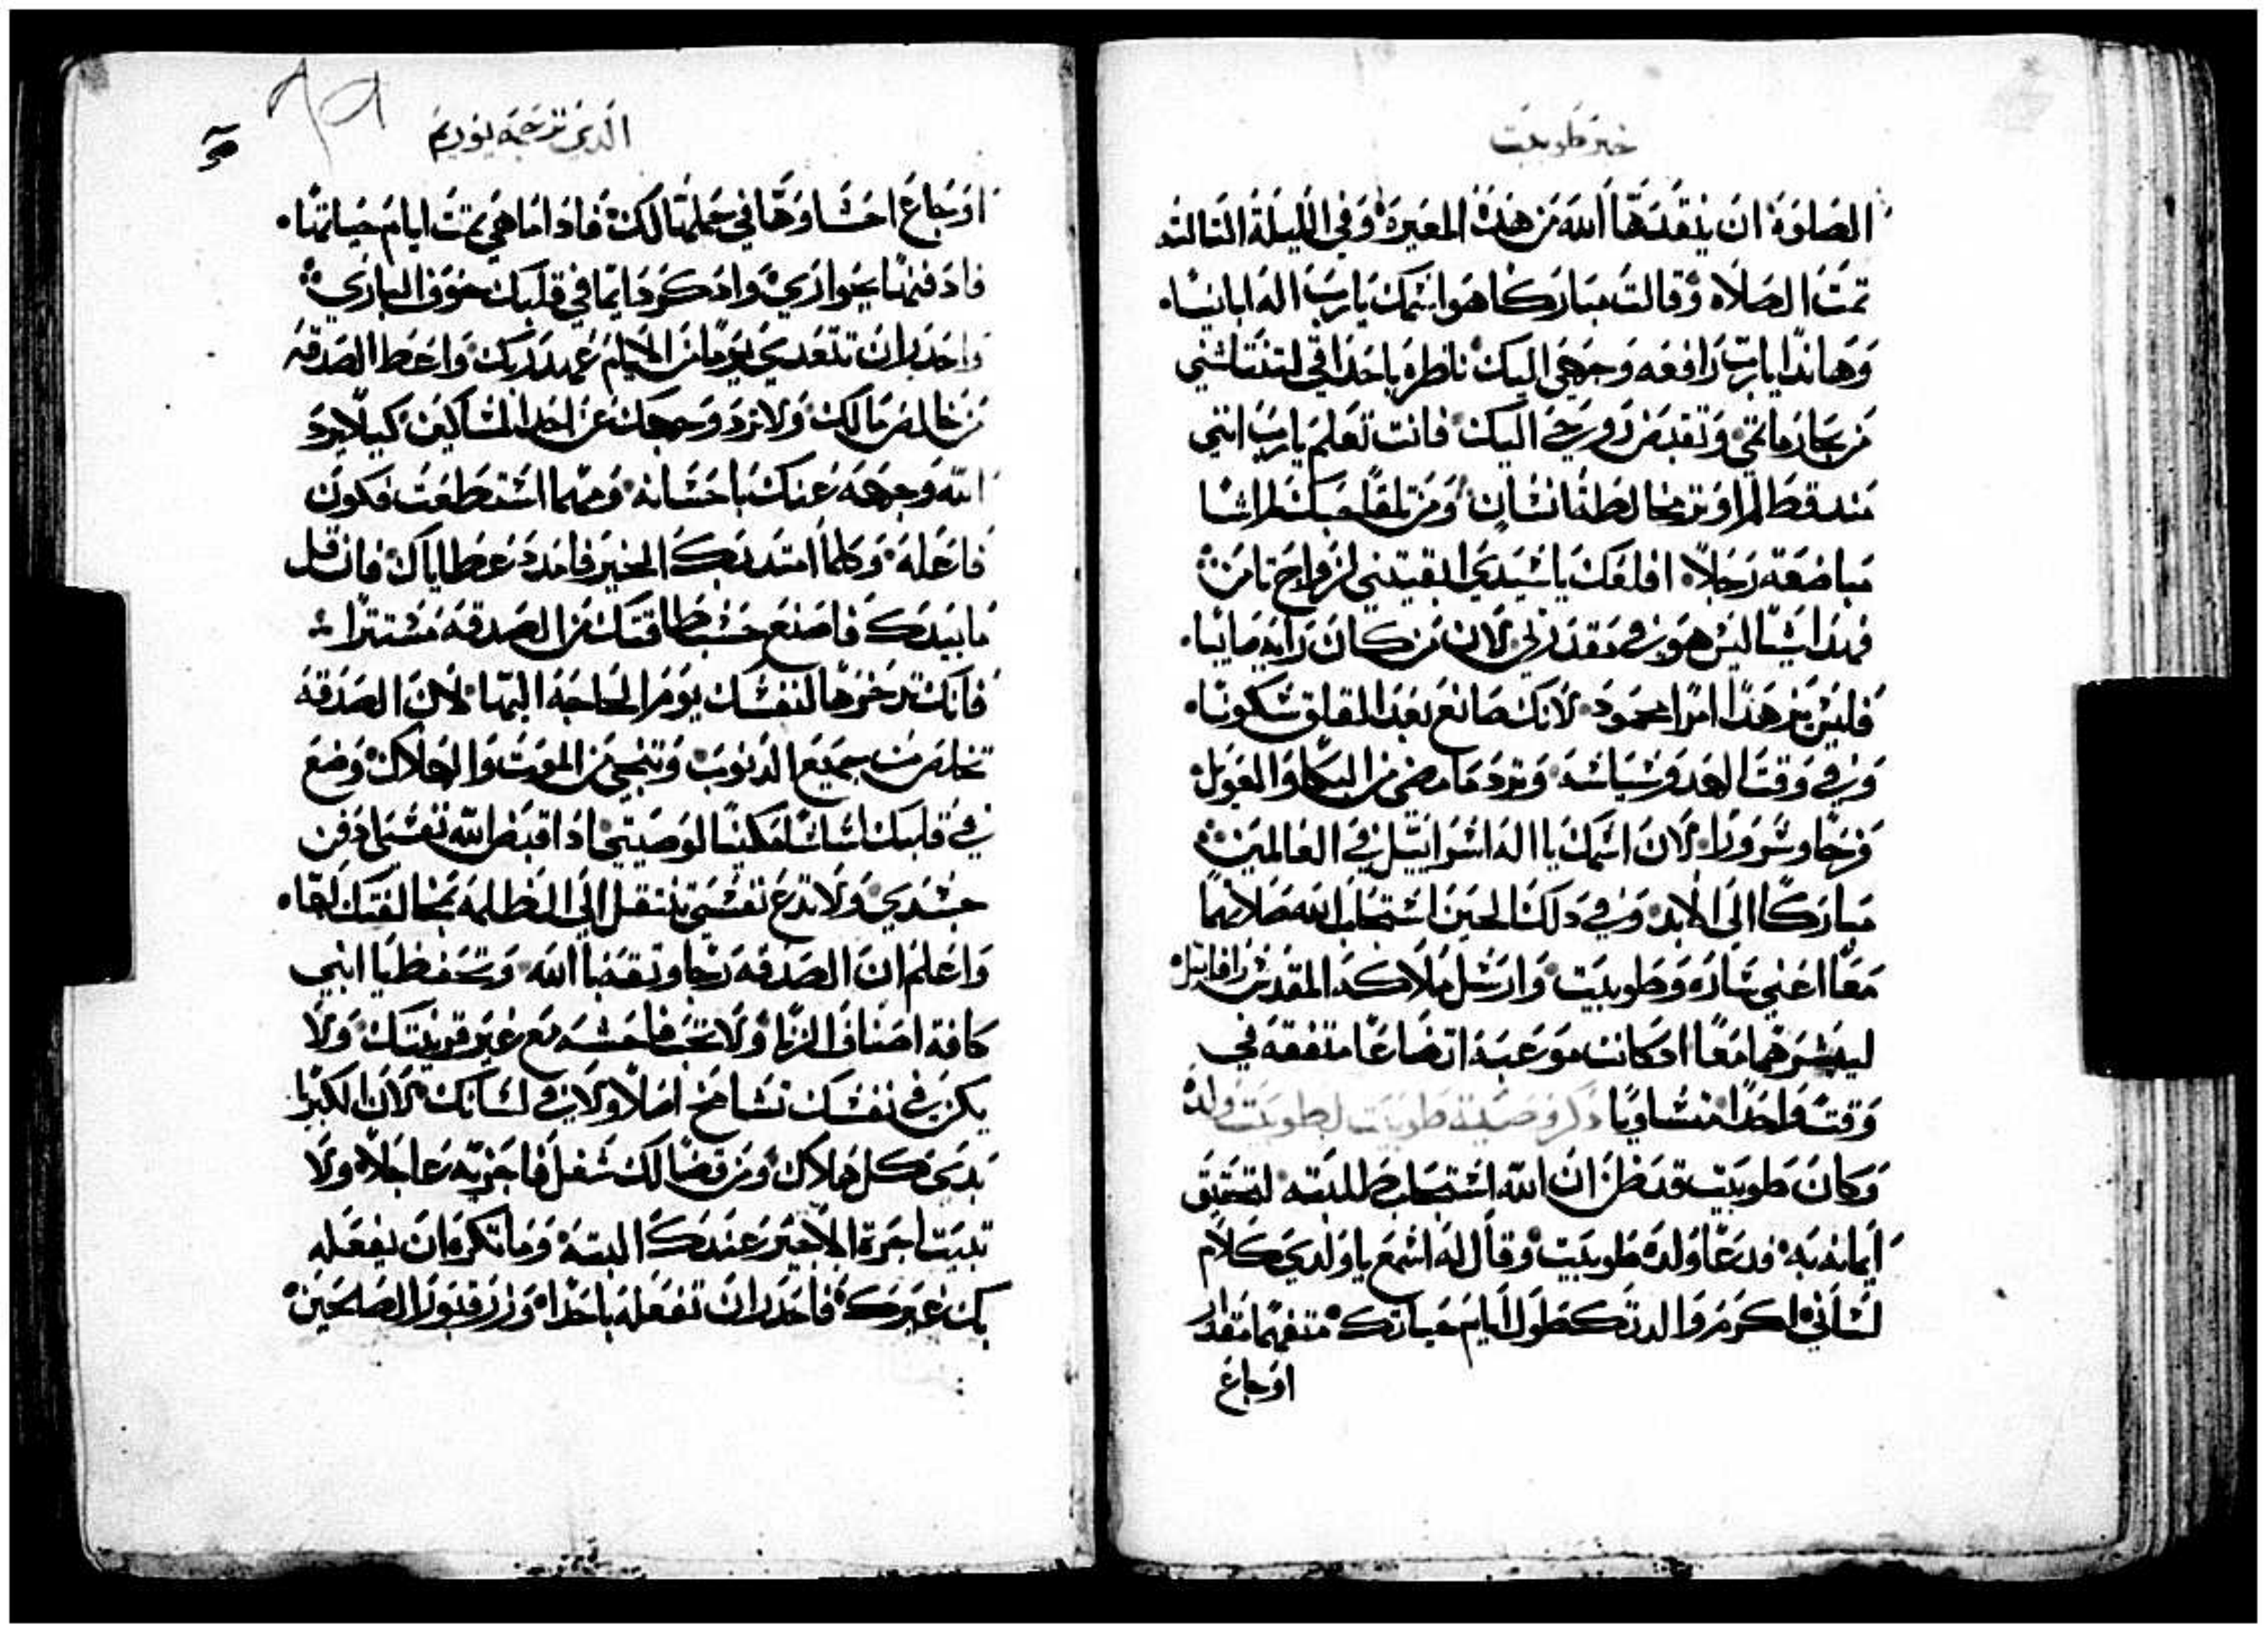 خبر طوبيت
الصلوة ان ينقدها الله من هذه المعيرة وفي الليلة التالته
تمت الصلاه وقالت مباركا هو اسمك يارب اله اباينا
وهاندا يارب رافعه وجهي اليك ناظره باحداقي لتنتاشني
من بحار ماتمي وتقبض روحي اليك فانت تعلم يارب انني
مند قط لم اوتر مخالطة انسان ومن تلقا حبك لم اشا
مباضعة رجلا افلعك ياسيدي ابقيتني لزواج تامن
فهدا شيا ليس هو في مقدرتي لان من كان رايه صايبا
فليس من هدا امرا محمود لانك صانع بعد القلق سكونا
وفي وقت الهدو سياسه وترد مامضى من البكا والعويل
فرحا وسرورا لان اسمك يا اله اسراييل في العالمين
مباركا الى الابد وفي دلك الحين استجاب الله صلاتهما
معا اعني ساره وطوبيت وارسل ملاكه المقدس رافاييل
ليبشرهما معا اد كانت موعبة اتضاعا متفقه في
وقت واحدا متساويا دكر وصية طوبيت لطوبيت ولده
وكان طوبيت قد ظن ان الله استجاب طلبته لتحقيق
ايمانه به فدعا ولده طوبيت وقال له اسمع ياولدي كلام
لساني اكرم والدتك طول ايام حياتك متفهما مقدار
اوجاع
الدي ترجمة يوريم
٩٩
اوجاع احشاوها في حملها لك فادا ما هي تمت ايام حياتها
فادفنها بجواري وادكر دايما في قلبك خوف الباري
واحدر ان تتعدى يوما من الايام عهد ربك واعط الصدقه
من خالص مالك ولا ترد وجهك عن احد المساكين كيلا يرد
الله وجهه عنك باحسانه ومهما استطعت فكون
فاعله وكلما امتد بك الخير فامدد عطاياك فان قل
مابيدك فاصنع حسب طاقتك من الصدقه مستترا
فانك تدخرها لنفسك يوم الحاجة اليها لان الصدقة
تخلص من جميع الدنوب وتنجي من الموت والهلاك وضع
في قلبك اساسا مكينا لوصيتي ادا قبض الله نفسي ادفن
جسدي ولا تدع نفسي تنتقل الى الظلمة بمخالفتك لها
واعلم ان الصدقه رجا وثقة بالله وتحفظ يا ابني
كافة اصناف الزنا ولا تخب فاحشه مع غير قرينتك ولا
يكن في نفسك تشامخ اصلا ولا في لسانك لان الكبريا
بدى كل هلاك ومن قضا لك شغل فاجزيه عاجلا ولا
تبيت اجرة الاجير عندك البتة وما تكره ان يفعله
بك غيرك فاحدر ان تفعله باحدا وزر قبور الصالحين